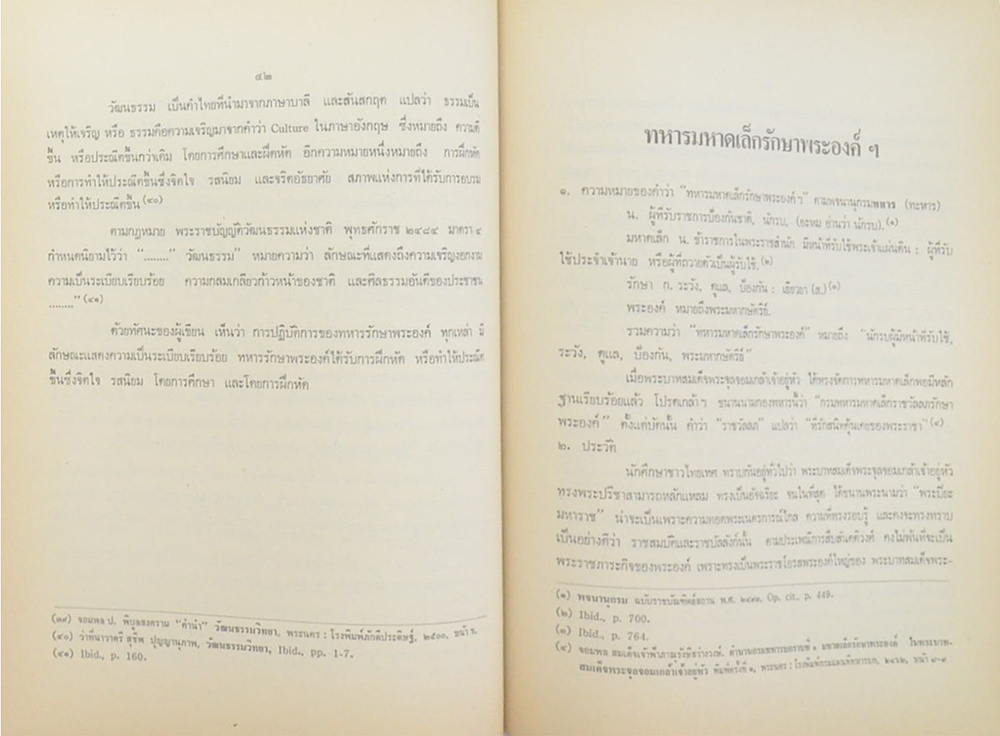 ๔๒
วัฒนธรรม เป็นคำไทยที่นำมาจากภาษาบาลี และสันสกฤต แปลว่า ธรรมเป็น
เหตุให้เจริญ หรือ ธรรมคือความเจริญมาจากคำว่า Culture ในภาษาอังกฤษ ซึ่งหมายถึง ความดี
ขึ้น หรือประณีตขึ้นกว่าเดิม โดยการศึกษาและฝึดหัด อีกความหมายหนึ่งหมายถึง การฝึกหัด
หรือการทำให้ประณีตขึ้นซึ่งจิตใจ รสนิยม และจริตอัธยาศัย สภาพแห่งการที่ได้รับการอบรม
หรือทำให้ประณีตขึ้น (๔๐)
ตามกฎหมาย พระราชบัญญัติวัฒนธรรมแห่งชาติ พุทธศักราช ๒๔๘๕ มาตรา ๔
กำหนดนิยามไว้ว่า “........” วัฒนธรรม” หมายความว่า ลักษณะที่แสดงถึงความเจริญงอกงาม
ความเป็นระเบียบเรียบร้อย ความกลมเกลียวก้าวหน้าของชาติ และศิลธรรมอันดีของประชาชน
........” (๔๑)
ด้วยทัศนะของผู้เขียน เห็นว่า การปฏิบัติการของทหารรักษาพระองค์ ทุกเหล่า มี
ลักษณะแสดงความเป็นระเบียบเรียบร้อย ทหารรักษาพระองค์ได้รับการฝึกหัด หรือทำให้ประณีต
ขึ้นซึ่งจิตใจ รสนิยม โดยการศึกษา และโดยการฝึกหัด
(๓๙) จอมพล ป. พิบูลสงคราม “คำนำ” วัฒนธรรมวิทยา, พระนคร : โรงพิมพ์ภักดีประดิษฐ์, ๒๕๐๐, หน้า ข.
(๔๐) ว่าที่นาวาตรี สุชีพ ปุญญานุภาพ, วัฒนธรรมวิทยา, Ibid., pp. 1-7.
(๔๑) Ibid., p. 160.
ทหารมหาดเล็กรักษาพระองค์ ฯ
๑. ความหมายของคำว่า “ทหารมหาดเล็กรักษาพระองค์ ฯ” ตามพจนานุกรมทหาร (ทะหาร)
น. ผู้ที่รับราชการป้องกันชาติ, นักรบ, (อะหม อ่านว่า นักรบ). (๑)
มหาดเล็ก น. ข้าราชการในพระราชสำนัก มีหน้าที่รับใช้พระเจ้าแผ่นดิน : ผู้ที่รับ
ใช้ประจำเจ้านาย หรือผู้ที่ถวายตัวเป็นผู้รับใช้. (๒)
รักษา ก. ระวัง, ดูแล, ป้องกัน : เยียวยา (ส.) (๓)
พระองค์ หมายถึงพระมหากษัตริย์.
รวมความว่า “ทหารมหาดเล็กรักษาพระองค์” หมายถึง “นักรบผู้มีหน้าที่รับใช้,
ระวัง, ดูแล, ป้องกัน, พระมหากษัตริย์”
เมื่อพระบาทสมเด็จพระจุลจอมเกล้าเจ้าอยู่หัว ได้ทรงจัดการทหารมหาดเล็กพอมีหลัก
ฐานเรียบร้อยแล้ว โปรดเกล้า ฯ ขนานนามกองทหารนี้ว่า “กรมทหารมหาดเล็กราชวัลลภรักษา
พระองค์” ตั้งแต่บัดนั้น คำว่า “ราชวัลลภ” แปลว่า “ที่รักสนิทคุ้นเคยของพระราชา” (๔)
๒. ประวัติ
นักศึกษาชาวไทยเทศ ทราบกันอยู่ทั่วไปว่า พระบาทสมเด็จพระจุลจอมเกล้าเจ้าอยู่หัว
ทรงพระปรีชาสามารถหลักแหลม ทรงเป็นอัจฉริยะ จนในที่สุด ได้ขนานพระนามว่า “พระปิยะ
มหาราช” น่าจะเป็นเพราะความทอดพระเนตรการณ์ไกล ความที่ทรงรอบรู้ และคงจะทรงทราบ
เป็นอย่างดีว่า ราชสมบัติและราชบัลลังก์นั้น ตามประเพณีการสืบสันตติวงศ์ คงไม่พ้นที่จะเป็น
พระราชภาระกิจของพระองค์ เพราะทรงเป็นพระราชโอรสพระองค์ใหญ่ของ พระบาทสมเด็จพระ-
(๑) พจนานุกรม ฉบับราชบัณฑิตย์สถาน พ.ศ. ๒๔๙๓, Op. cit., p. 449.
(๒) Ibid., p. 700.
(๓) Ibid., p. 764.
(๔) จอมพล สมเด็จเจ้าฟ้าภาณุรังษีสว่างวงษ์. ตำนานกรมทหารบกราบที่ ๑ มหาดเล็กรักษาพระองค์ ในพระบาท-
สมเด็จพระจุลจอมเกล้าเจ้าอยู่หัว พิมพ์ครั้งที่ ๑, พระนคร : โรงพิมพ์กรมแผนที่ทหารบก, ๒๔๙๖, หน้า ๘-๙